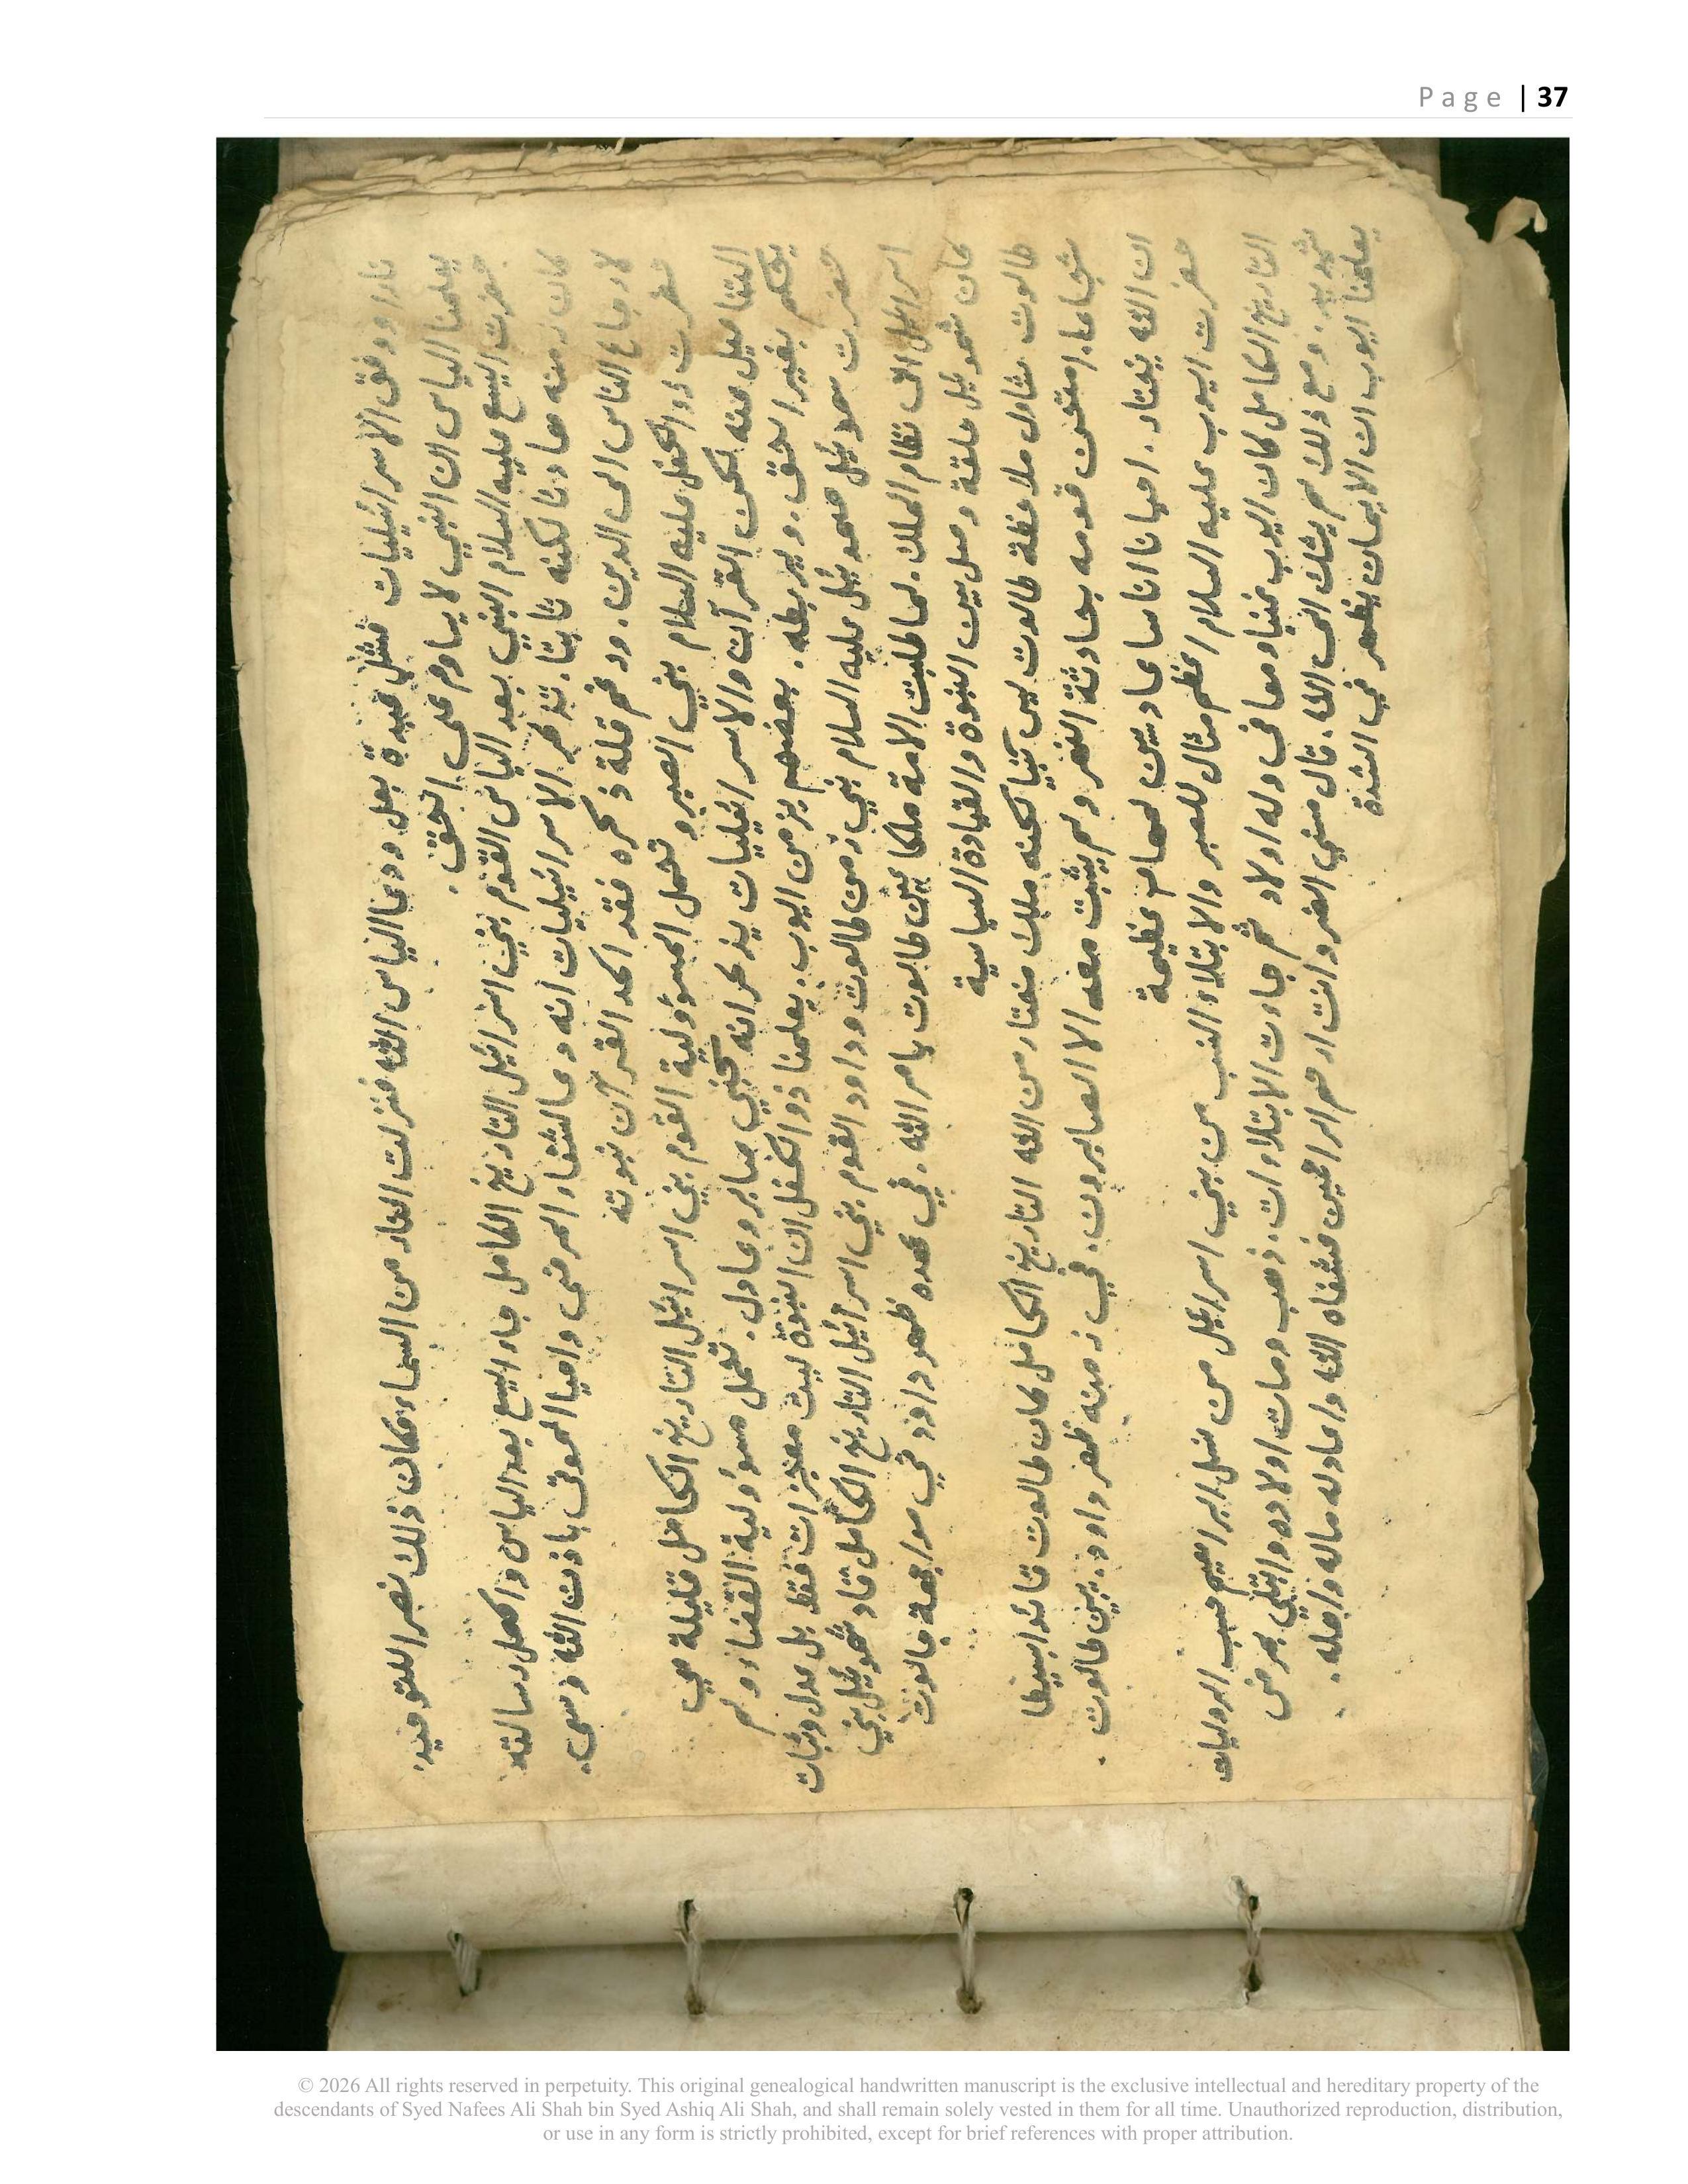 Page | 37
ناداو وفق الاسرائيليات فشل عبدة بعل ودعا الياس الله فنزلت النار من السماء وكان ذلك نصر اللتوحيد.
يعلمنا الياس ان النبي لا يساوم على الحق.
حضرت اليسع عليه السلام النبي بعد الياس القوم بني اسرائيل التاريخ الكامل جاء اليسع بعد الياس واكمل رسالته
كان زمنه هادئا لكنه ثابتا. تذكر الاسرائيليات أنه دعا لشفاء المرضى واحيا الموتى باذن الله وسعى
لارجاع الناس الى الدين. ورغم قلة ذكره فقد اكد القرآن نبوته
حضرت ذو الكفل عليه السلام نبي الصبر و تحمل المسؤولية القوم بني اسرائيل التاريخ الكامل قليلة هي
التفاصيل عنه لكن القرآن والاسرائيليات يذكر انه كنبي صابر وعادل. تحمل مسؤولية القضاء ولم
يحكم بغير الحق. ويربطه. بعضهم بزمن اليوب. يعلمنا ذو الكفل ان النبوة ليست معجزات فقط بل عدل وثبات
حضرت سموئيل صموئيل عليه السلام نبي زمن طالوت وداود القوم بني اسرائيل التاريخ الكامل قاد شموئيل بني
اسرائيل الى نظام الملك. لما طلبت الامة ملكا عين طالوت بامر الله. في عهده ظهر داؤد في مواجهة جالوت
كان شموئيل حلقة وصل بين النبوة والقيادة السياسية
طالوت شاول ملاحظة طالوت ليس نبيا لكنه ملك مختار من الله التاريخ الكامل كان طالوت قائدا بسيطا
شجاعا. امتحن قومه بحادثة النهر ولم يثبت معه الا الصابرون. في زمنه ظهر داود. بين طالوت
ان الله يختار. احيانا اناسا عاديين لمهام عظيمة
حضرت اليوب عليه السلام اعظم مثال للصبر والابتلاء النسب من بني اسرائيل من نسل ابراهيم حسب الروايات
التاريخ الكامل كان اليوب غنيا ومعافى وله اولاد ثم جاءت الابتلاءات. ذهب ومات اولاده وابتلي بمرض
شديد. ومع ذلك لم يشك الى الله. قال مسني الضر وانت ارحم الراحمين فشفاه الله واعاد له ماله واهله.
يعلمنا ايوب ان الايمان يظهر في الشدة
© 2026 All rights reserved in perpetuity. This original genealogical handwritten manuscript is the exclusive intellectual and hereditary property of the
descendants of Syed Nafees Ali Shah bin Syed Ashiq Ali Shah, and shall remain solely vested in them for all time. Unauthorized reproduction, distribution,
or use in any form is strictly prohibited, except for brief references with proper attribution.